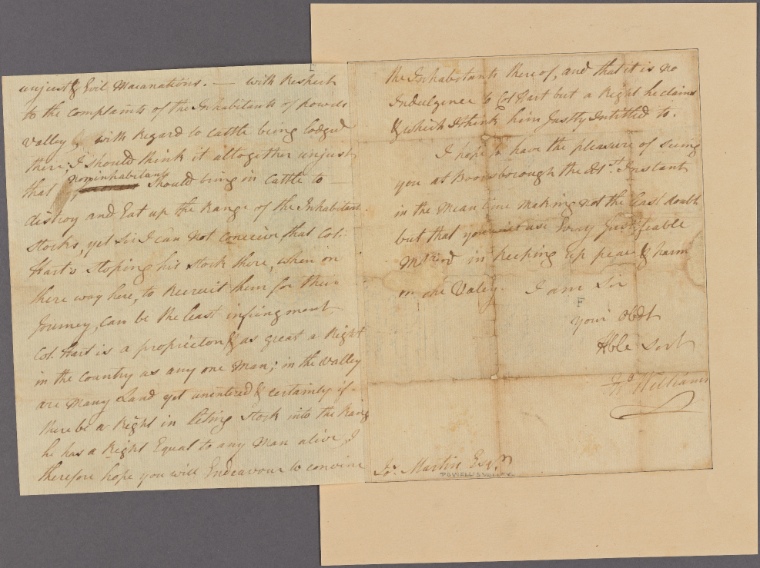 unjust & Evil Macanations. — with Respect
to the complaints of the Inhabitants of Powels
Valley with Regard to Cattle being lodged
there, I should think it altogether unjust
that noninhabitants should bring in Cattle to
destroy and Eat up the Range of the Inhabitants
Stocks, yet Sir I can not conceive that Col.
Hart's Stoping his Stock there, when on
there way here, to Recruit them for their
Journey, can be the least infringment
Col. Hart is a proprietor & as great a Right
in the Country as any one Man; in the Valley
are many Land yet unentred & certainly if
there be a Right in leting Stock into the Rang
he has a Right Equal to any Man alive, I
therefore hope you will Endeavour to convince
the Inhabitants thereof, and that it is no
Indulgence to Col Hart but a Right he claims
& which I think him Justly Intitled to.
I hope to have the pleasure of seeing
you at Boonsborough the Instant
in the mean time making not the least doubt
but that you will use Every Justifeable
Method in keeping up peace & harm
on in the Valey. I am Sir
Your Obdt
Hble Servt
Jno Williams
Jos. Martin Esqr